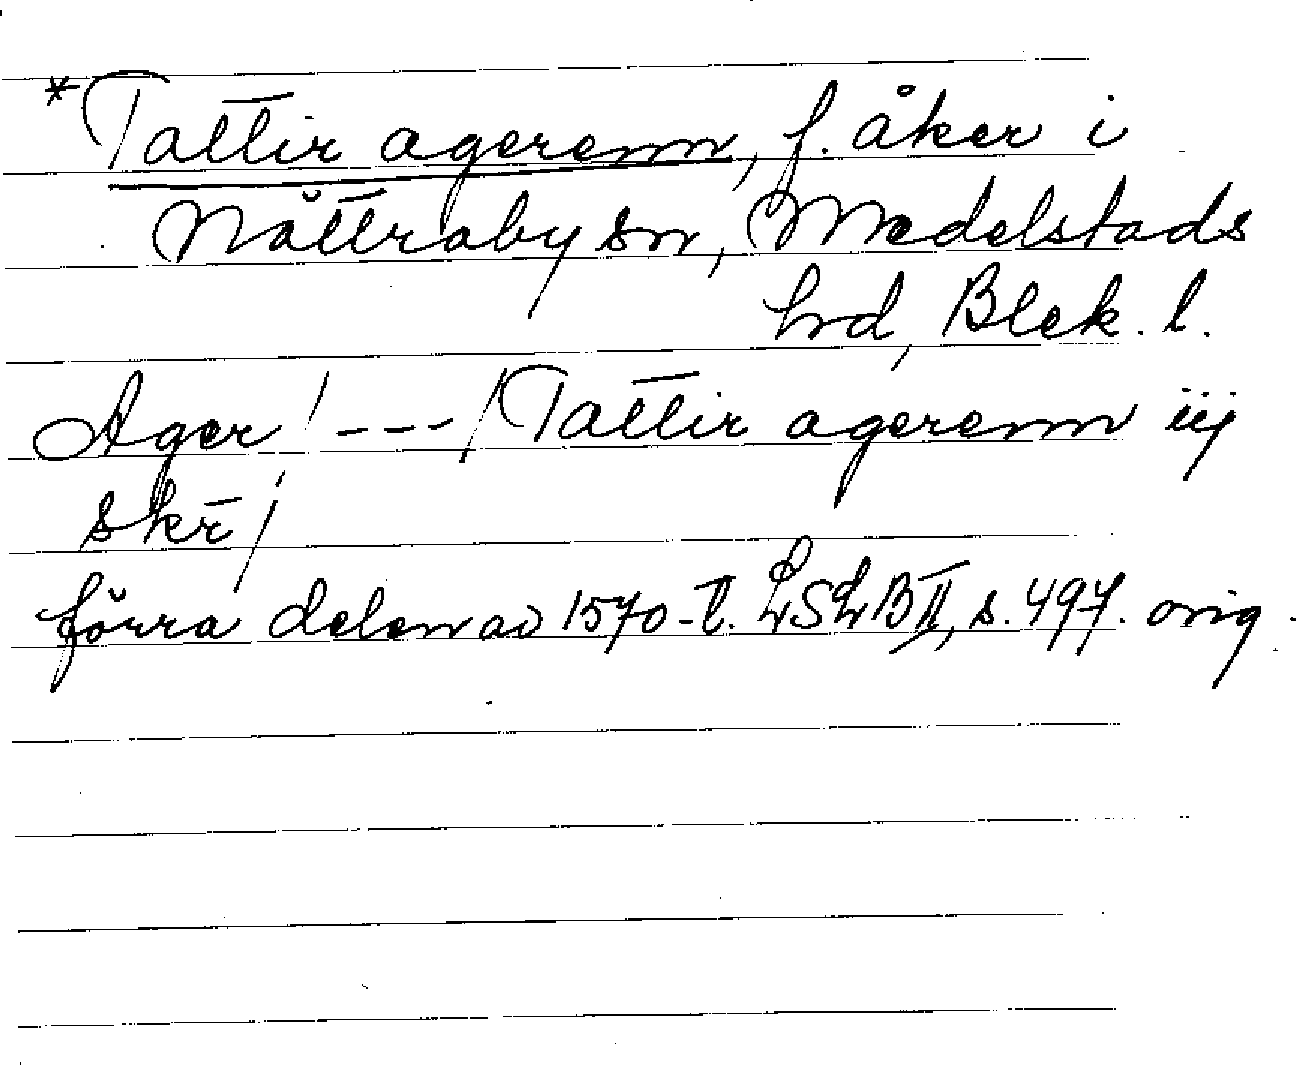 *Tattir agerenn, f. åker i
Nättraby sn, Medelstads
hrd, Blek. l.
Ager /---/ Tattir agerenn iij
skr̄/
förra delen av 1570-t. LSLB II, s. 497. orig.